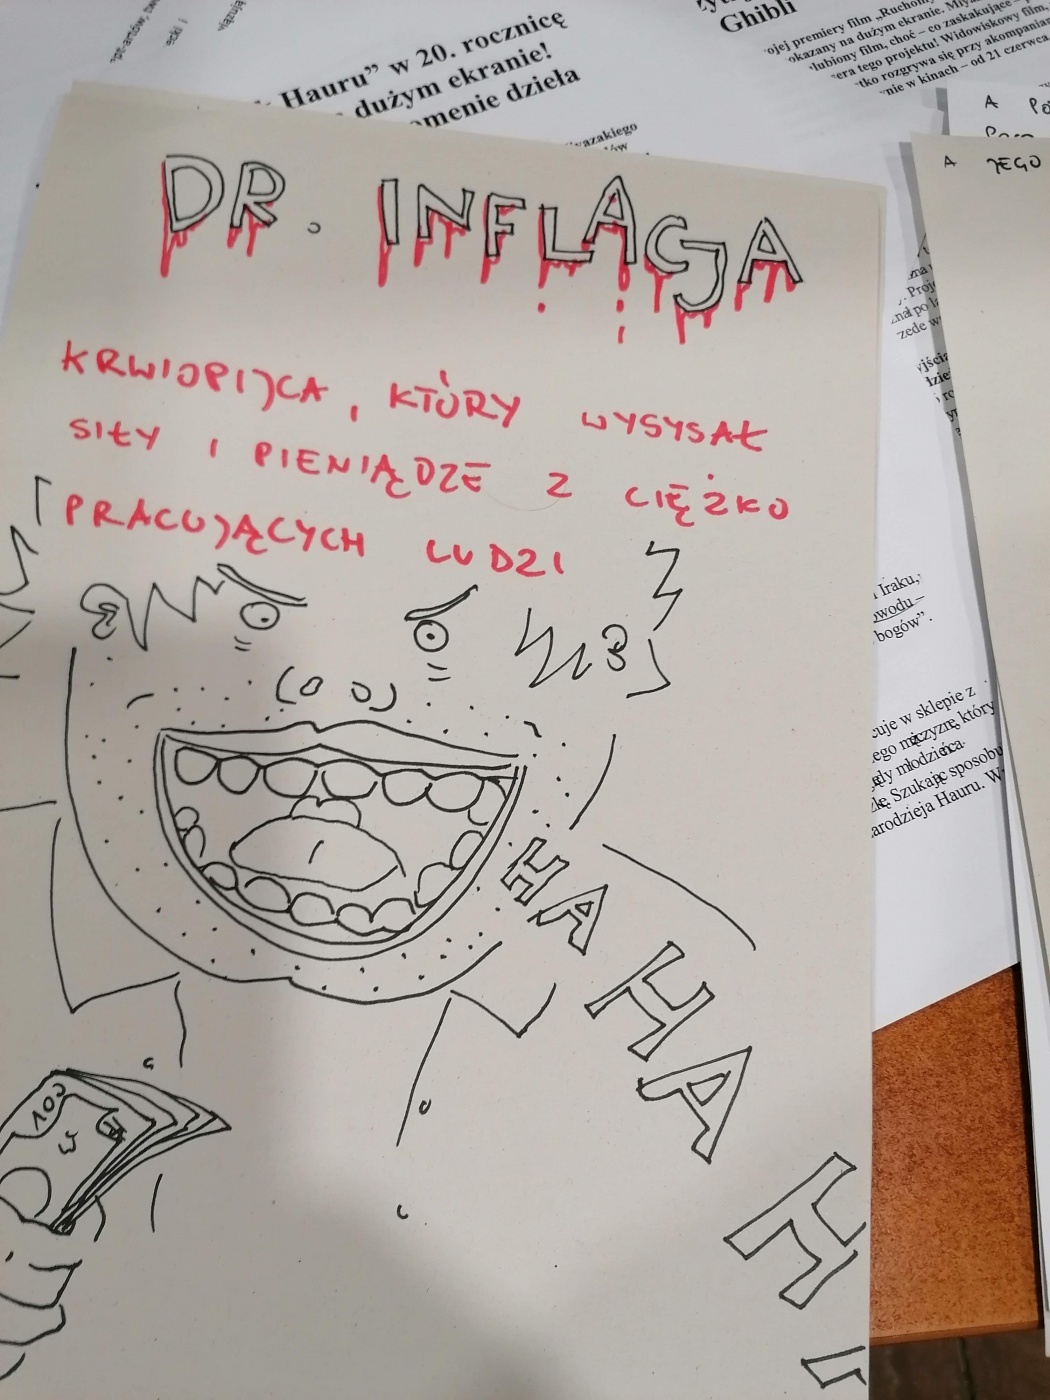 Hauru” w 20. rocznicę
dużym ekranie!
omenie dzieła
Ghibli
ojej premiery film „Ruchom
okazany na dużym ekranie. Miy
lubiony film, choć – co zaskakujące –
era tego projektu! Widowiskowy film,
tko rozgrywa się przy akompaniam
nie w kinach – od 21 czerwca
A PO
A JEGO
DR. INFLACJA
KRWIOPIJCA, KTÓRY WYSYSAŁ
SIŁY I PIENIĄDZE Z CIĘŻKO
PRACUJĄCYCH LUDZI
HA HA H
100
Iraku,
owodu –
bogów”.
cuje w sklepie z
ego mężczyznę, który
ędy młodzieńca
zkę. Szukając sposobu
arodzieja Hauru. W